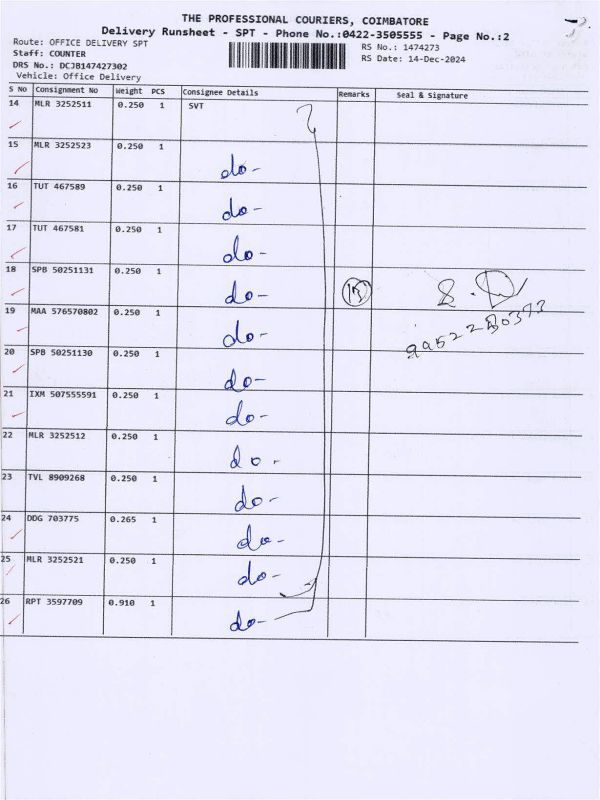 THE PROFESSIONAL COURIERS, COIMBATORE
Delivery Runsheet - SPT - Phone No.:0422-3505555 - Page No.:2
Route: OFFICE DELIVERY SPT
Staff: COUNTER
DRS No.: DCJB147427302
Vehicle: Office Delivery
RS No.: 1474273
RS Date: 14-Dec-2024
S No Consignment No Weight PCS Consignee Details Remarks Seal & Signature
14 MLR 3252511 0.250 1 SVT
15 MLR 3252523 0.250 1 do-
16 TUT 467589 0.250 1 do-
17 TUT 467581 0.250 1 do-
18 SPB 50251131 0.250 1 do-
19 MAA 576570802 0.250 1 do-
20 SPB 50251130 0.250 1 do-
21 IXM 507555591 0.250 1 do-
22 MLR 3252512 0.250 1 do-
23 TVL 8909268 0.250 1 do-
24 DDG 703775 0.265 1 do-
25 MLR 3252521 0.250 1 do-
26 RPT 3597709 0.910 1 do-